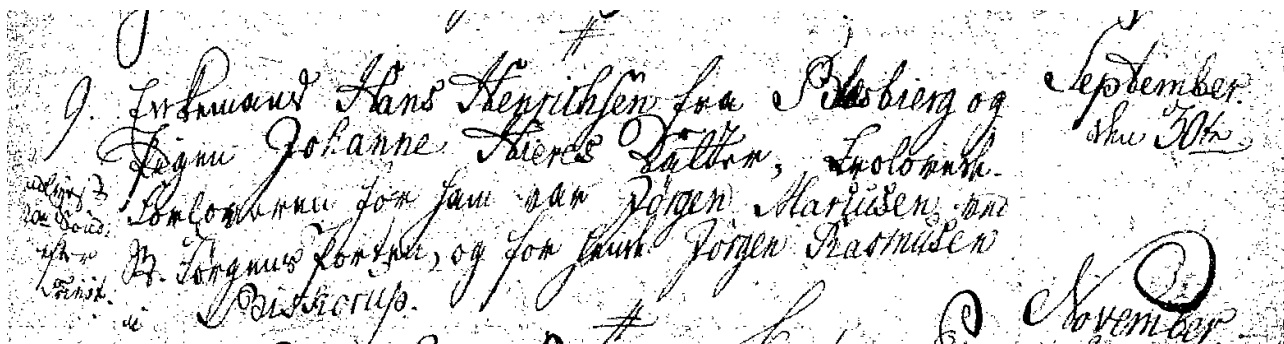 9. Enkemand Hans Henrichsen fra Blesbierg og
Pigen Johanne Nieres Datter, trolovede.
Forloveren for ham var Jørgen Mariusen ved
St. Jørgens Porten, og for hende Jörgen Rasmusen
i Bitskorup.
September.
den 30te
efter
Trinit.
November